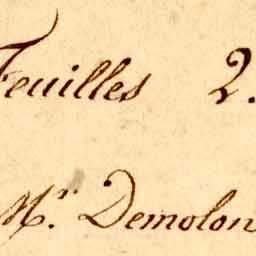 Feuilles 2.
Mr. Demolon